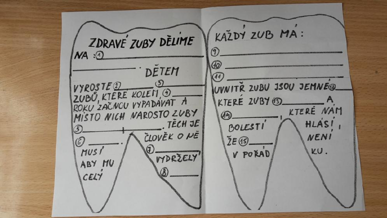 ZDRAVÉ ZUBY DĚLÍME
NA: ①
DĚTEM
VYROSTE ② ③
ZUBŮ, KTERÉ KOLEM ④
ROKU ZAČNOU VYPADÁVAT A
MÍSTO NICH NAROSTO ZUBY
⑤ TĚCH JE
⑥ ČLOVĚK O NĚ
MUSÍ ⑦
ABY MU VYDRŽELY
CELÝ ⑧
KAŽDÝ ZUB MÁ:
⑨
⑩
⑪
UVNITŘ ZUBU JSOU JEMNÉ ⑫
KTERÉ ZUBY ⑬ A
⑭ KTERÉ NÁM
BOLESTÍ HLÁSÍ,
ŽE ⑮ NENÍ
V POŘÁD KU.